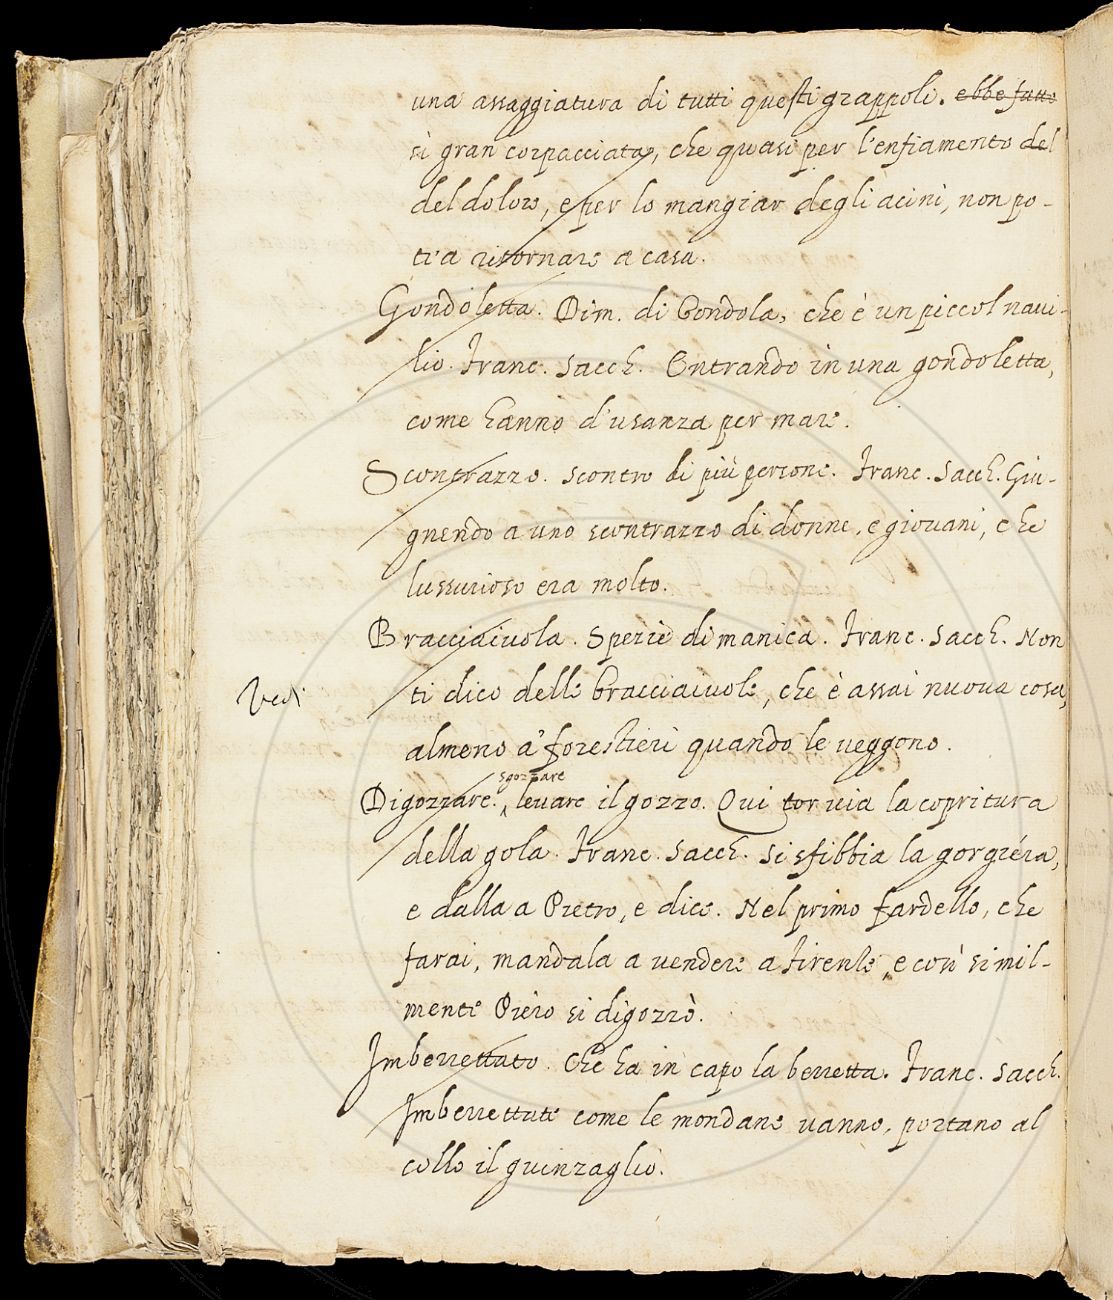 una assaggiatura di tutti questi grappoli. ebbe fatto
sì gran corpacciata, che quasi per l'enfiamento del
del dolore, e per lo mangiar degli acini, non po-
tea ritornare a casa.
Gondoletta. Dim. di Gondola, che è un piccol navi-
lio. Franc. Sacch. Entrando in una gondoletta,
come hanno d'usanza per mare.
Scontrazzo. scontro di più persone. Franc. Sacch. Giu-
gnendo a uno scontrazzo di donne, e giovani, che
lussurioso era molto.
Bracciaiuola. Spezie di manica. Franc. Sacch. Non
Vedi
ti dico delle bracciaiuole, che è assai nuova cosa,
almeno a' forestieri quando le veggono.
sgozzare
Digozzare. levare il gozzo. Qui tor via la copritura
della gola. Franc. Sacch. Si sfibbia la gorgiera,
e dalla a Pietro, e dice. Nel primo fardello, che
farai, mandala a vendere a Firenze, e così simil-
mente Piero si digozzò.
Imberrettato. Che ha in capo la berretta. Franc. Sacch.
Imberrettate come le mondane vanno, portano al
collo il guinzaglio.